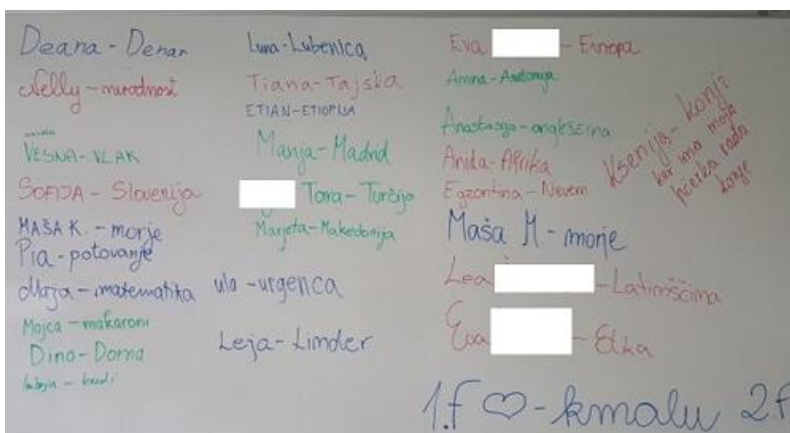 Deana - Denar
Nelly -
VESNA - VLAK
SOFIJA - Slovenija
MAŠA K. - morje
Pia - potovanje
Maja - matematika
Mojca - makaroni
Dino - Doma
Luna - Lubenica
Tiana - Tajska
ETIAN - ETIOPIJA
Manja - Madrid
Tora - Turčija
Marjeta - Makedonija
ula - urgenca
Leja - Limder
Eva - Evropa
Amna -
Anastasija - angleščina
Anida - Afrika
Egzontina - Nevem
Maša M - morje
Lea - Latinščina
Eva - Elka
Ksenija - konji
ker ima moja
hčerka rada
konje
1.f ♡ - kmalu 2.f